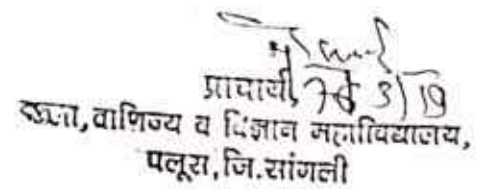 प्राचार्य,
कला, वाणिज्य व विज्ञान महाविद्यालय,
पलूस, जि.सांगली